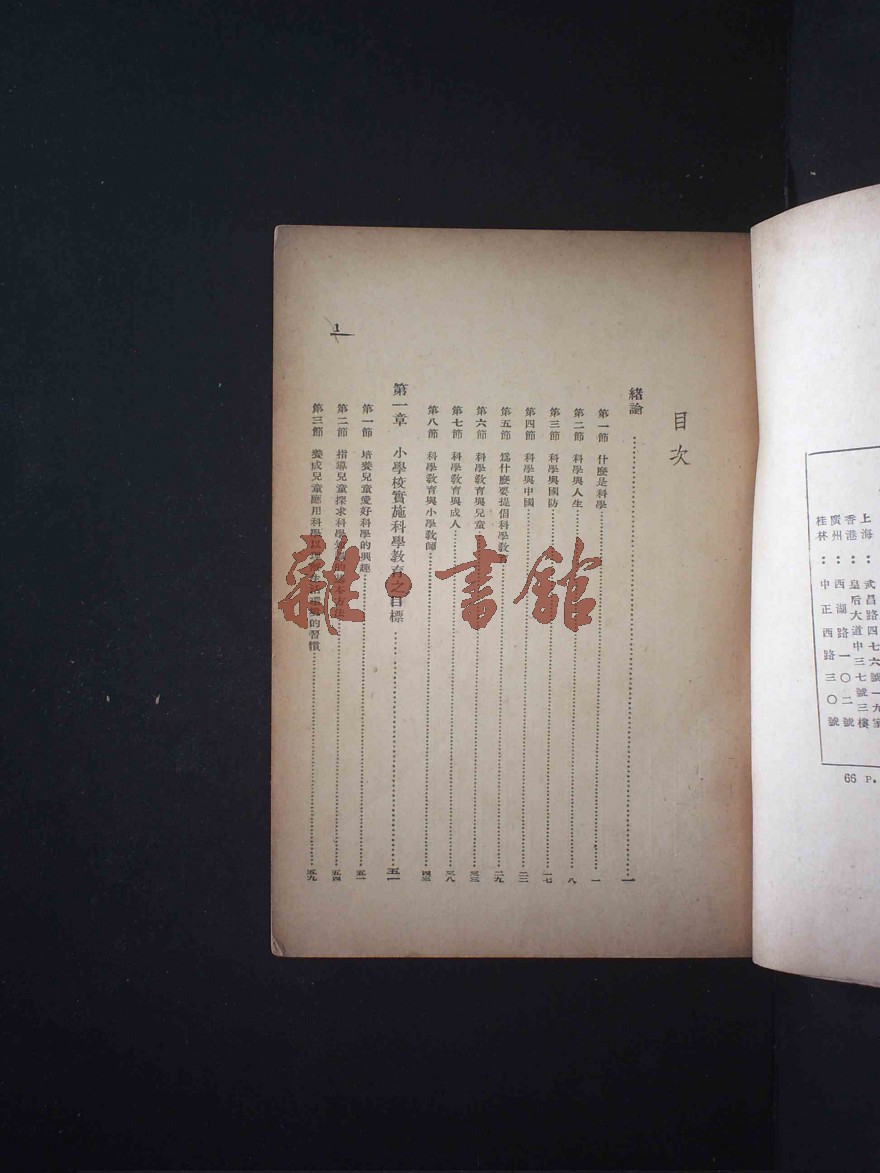 目次
緒論……一
第一節 什麼是科學……一
第二節 科學與人生……八
第三節 科學與國防……一七
第四節 科學與中國……二二
第五節 爲什麼要提倡科學教育……二九
第六節 科學教育與兒童……三三
第七節 科學教育與成人……三八
第八節 科學教育與小學教師……四三
第一章 小學校實施科學教育之目標……五一
第一節 培養兒童愛好科學的興趣……五一
第二節 指導兒童探求科學 的基本方法……五四
第三節 養成兒童應用科學以 生活環境的習慣……五九
1
雜·書館
上海：武昌路四七六號一九室
香港：皇后大道中三七號三樓
廣州：西湖路一〇二號
桂林：中正西路三〇號
66 P.